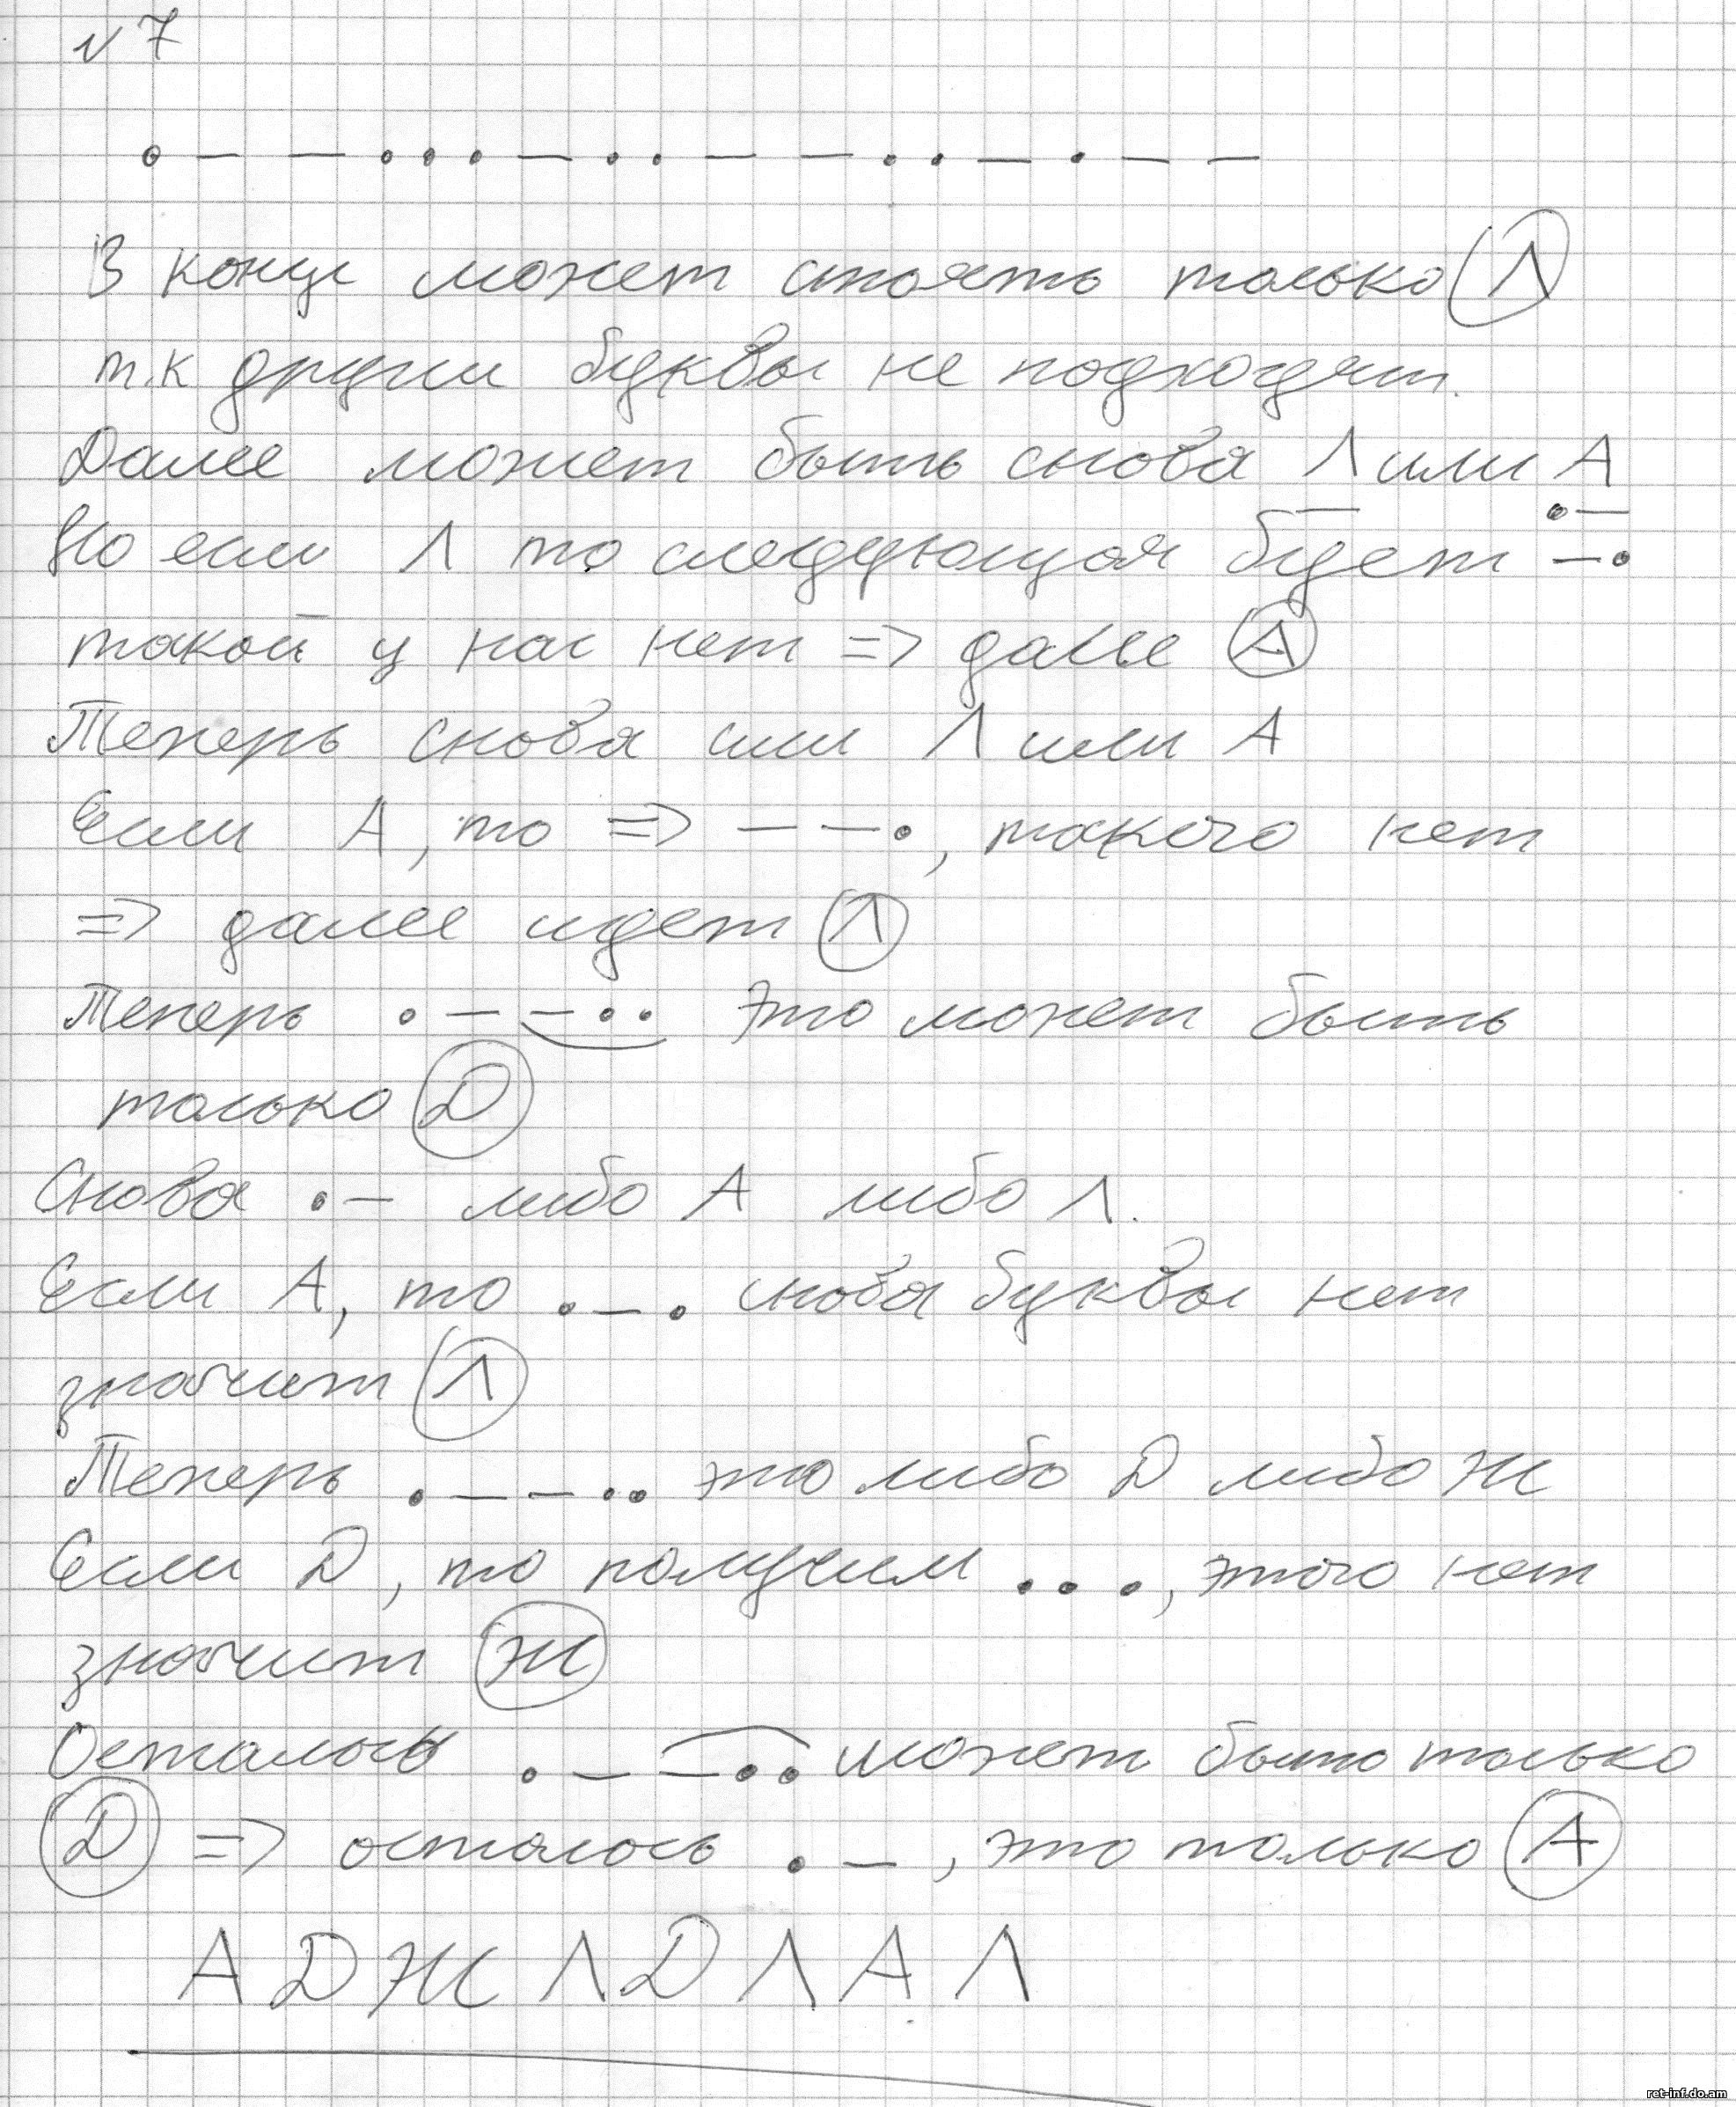 № 7
. — — . . . — . . — — . . — . — —
В конце может стоять только Л
т.к другии буквы не подходят.
Далее может быть снова Л или А
. —
Но если Л то следующая будет — .
такой у нас нет => далее А
Теперь снова или Л или А
Если А, то => — — . , такого нет
=> далее идет Л
Теперь . — — . . Это может быть
только Д
Снова . — либо А либо Л.
Если А, то . — . снова буквы нет
значит Л
Теперь . — — . . это либо Д либо Ж
Если Д, то получим . . . , этого нет
значит Ж
Осталось . — — . . может быть только
Д => осталось . — , это только А
А Д Ж Л Д Л А Л
ret-inf.do.am